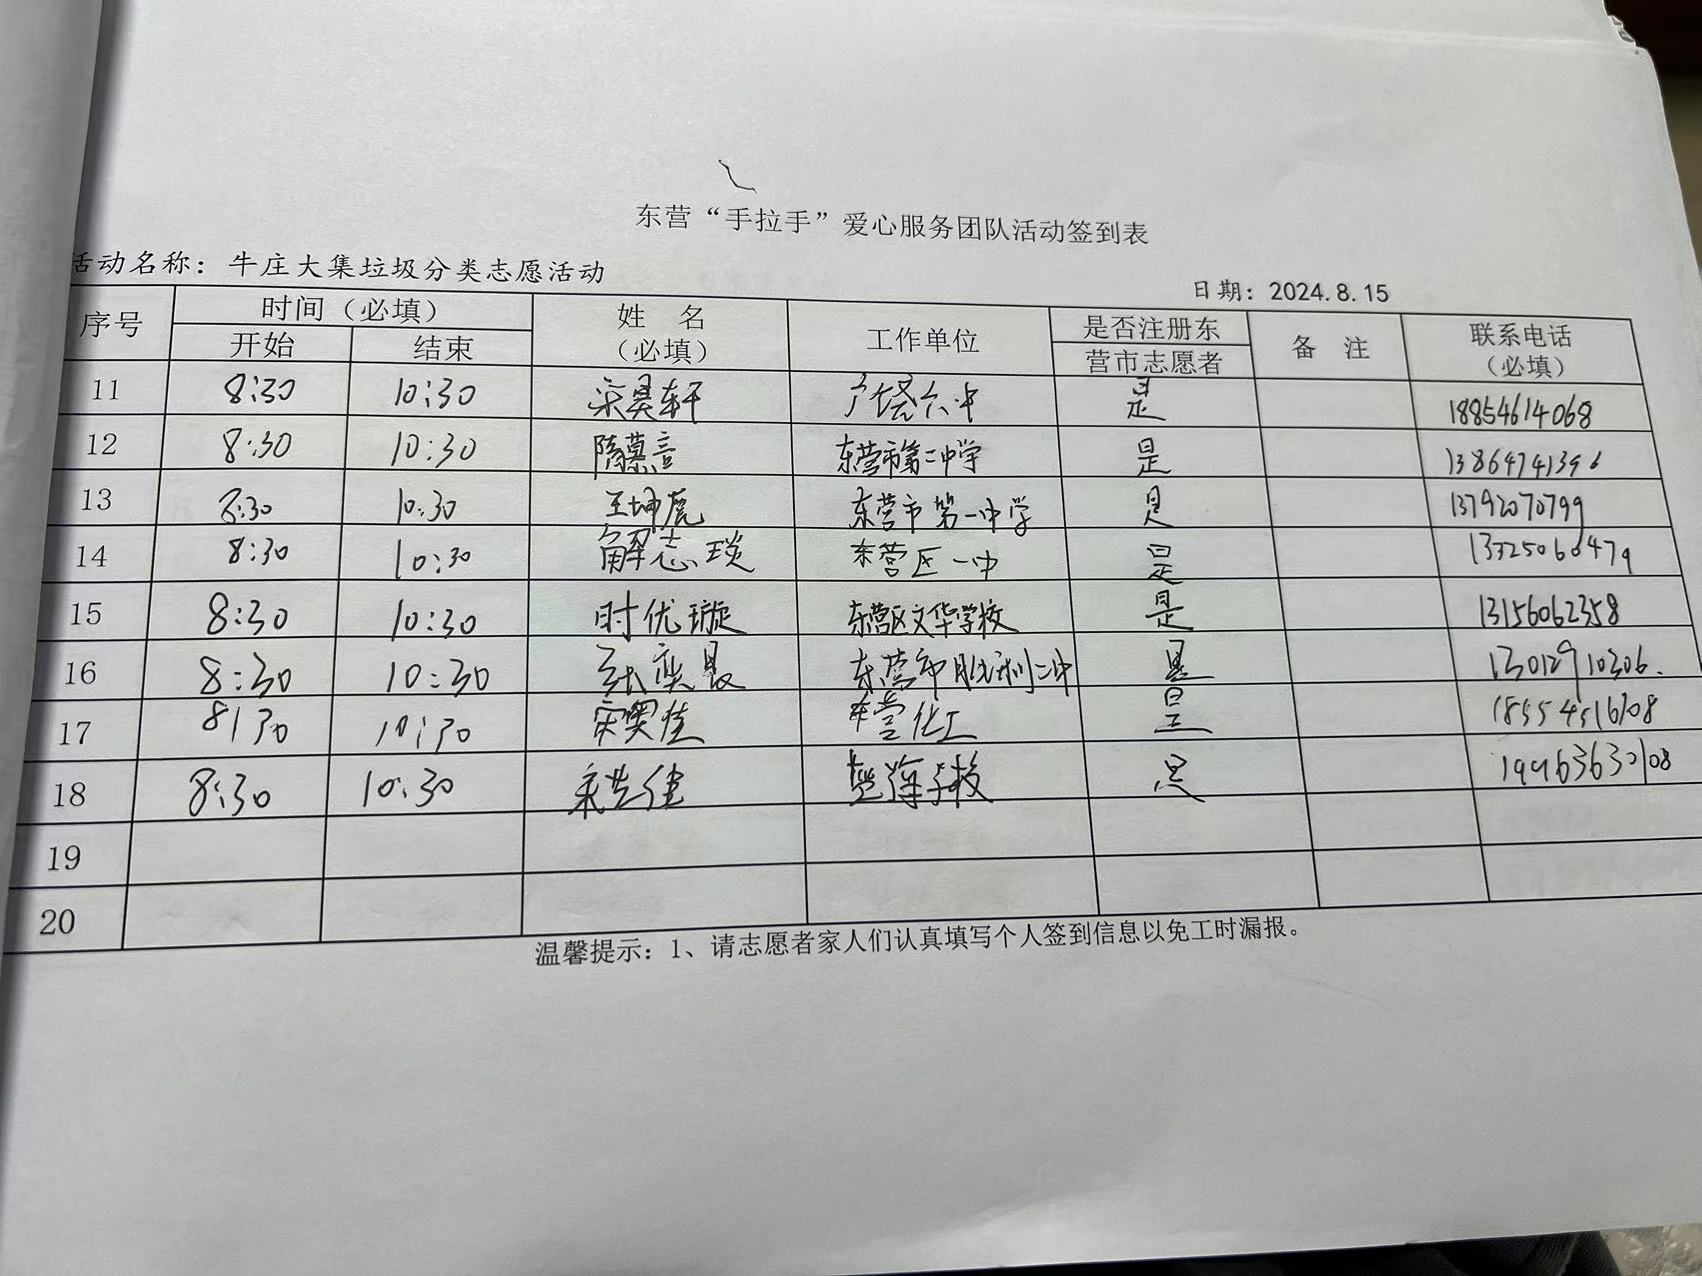 东营“手拉手”爱心服务团队活动签到表
活动名称：牛庄大集垃圾分类志愿活动
日期：2024.8.15
序号 时间（必填） 姓 名（必填） 工作单位 是否注册东营市志愿者 备 注 联系电话（必填）
开始 结束
11 8:30 10:30 梁昊轩 广饶六中 是 18854614068
12 8:30 10:30 隋慕言 东营市第二中学 是 13864741396
13 8:30 10:30 王坤虎 东营市第一中学 是 13792070799
14 8:30 10:30 解志琰 东营区一中 是
15 8:30 10:30 时优璇 东营区文华学校 是 13156062358
16 8:30 10:30 东营市胜利二中 是 13012910306.
17 8:30 10:30 东营化工 是 18554516108
18 8:30 10:30 是 19963630108
19
20
温馨提示：1、请志愿者家人们认真填写个人签到信息以免工时漏报。